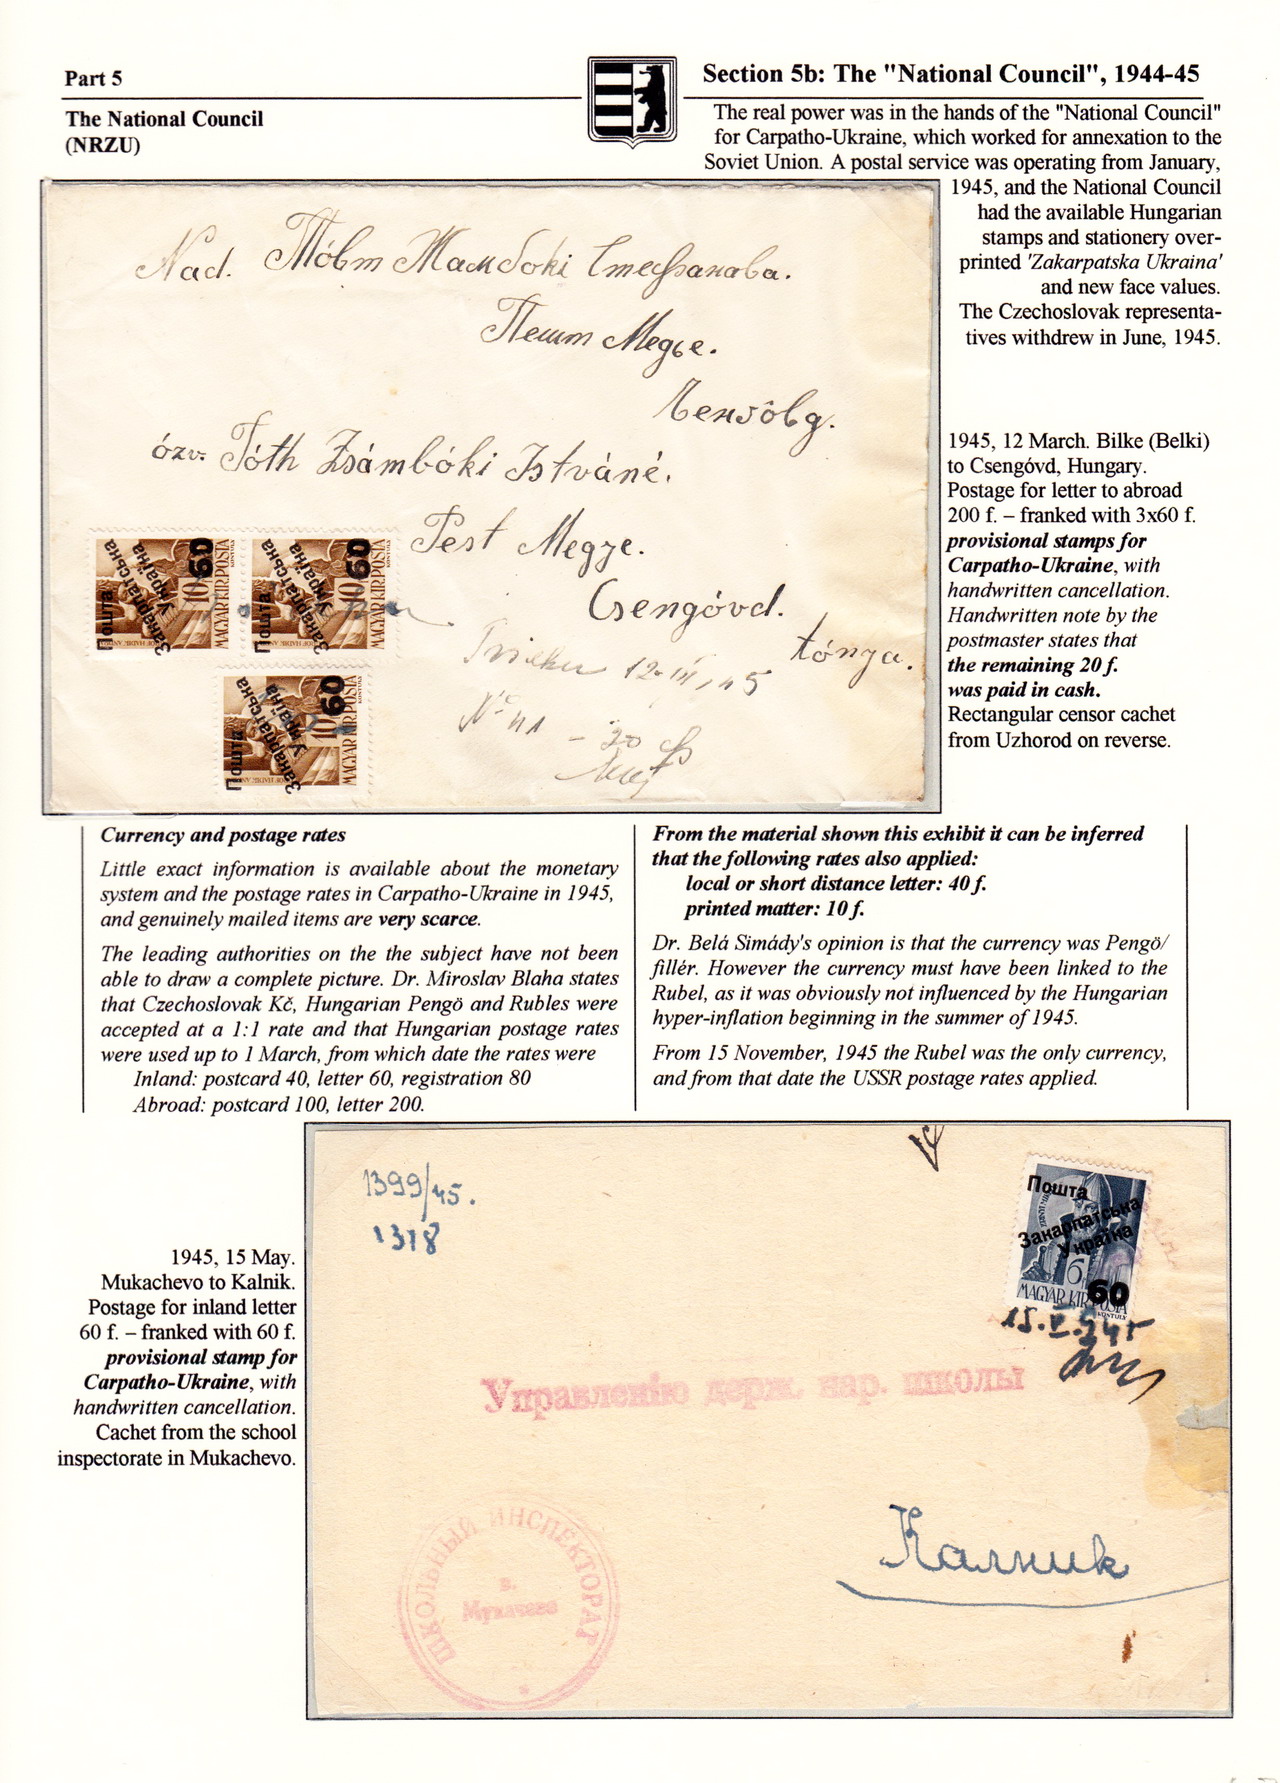 Part 5
Section 5b: The "National Council", 1944-45
The National Council
(NRZU)
The real power was in the hands of the "National Council"
for Carpatho-Ukraine, which worked for annexation to the
Soviet Union. A postal service was operating from January,
1945, and the National Council
had the available Hungarian
stamps and stationery over-
printed 'Zakarpatska Ukraina'
and new face values.
The Czechoslovak representa-
tives withdrew in June, 1945.
Nad. Товт Жамбокі Стефанова.
Пешт Медье.
özv. Tóth Zsámbóki Istváné.
Pest Megye.
Csengóvd.
tónya.
12 III, 45
Nº 41
- 20
Пошта
Закарпатська
Україна
60
10
MAGYAR KIR POSTA
Пошта
Закарпатська
Україна
60
10
MAGYAR KIR POSTA
Пошта
Закарпатська
Україна
60
10
MAGYAR KIR POSTA
1945, 12 March. Bilke (Belki)
to Csengóvd, Hungary.
Postage for letter to abroad
200 f. – franked with 3x60 f.
provisional stamps for
Carpatho-Ukraine, with
handwritten cancellation.
Handwritten note by the
postmaster states that
the remaining 20 f.
was paid in cash.
Rectangular censor cachet
from Uzhorod on reverse.
Currency and postage rates
Little exact information is available about the monetary
system and the postage rates in Carpatho-Ukraine in 1945,
and genuinely mailed items are very scarce.
The leading authorities on the the subject have not been
able to draw a complete picture. Dr. Miroslav Blaha states
that Czechoslovak Kč, Hungarian Pengö and Rubles were
accepted at a 1:1 rate and that Hungarian postage rates
were used up to 1 March, from which date the rates were
Inland: postcard 40, letter 60, registration 80
Abroad: postcard 100, letter 200.
From the material shown this exhibit it can be inferred
that the following rates also applied:
local or short distance letter: 40 f.
printed matter: 10 f.
Dr. Belá Simády's opinion is that the currency was Pengö/
fillér. However the currency must have been linked to the
Rubel, as it was obviously not influenced by the Hungarian
hyper-inflation beginning in the summer of 1945.
From 15 November, 1945 the Rubel was the only currency,
and from that date the USSR postage rates applied.
1945, 15 May.
Mukachevo to Kalnik.
Postage for inland letter
60 f. – franked with 60 f.
provisional stamp for
Carpatho-Ukraine, with
handwritten cancellation.
Cachet from the school
inspectorate in Mukachevo.
1399/45.
1318
Пошта
Закарпатська
Україна
6
60
MAGYAR KIR POSTA
15.V.945
Управленію держ. нар. школы
ШКОЛЬНЫЙ ИНСПЕКТОРАТ
в.
Мукачеве
Калник